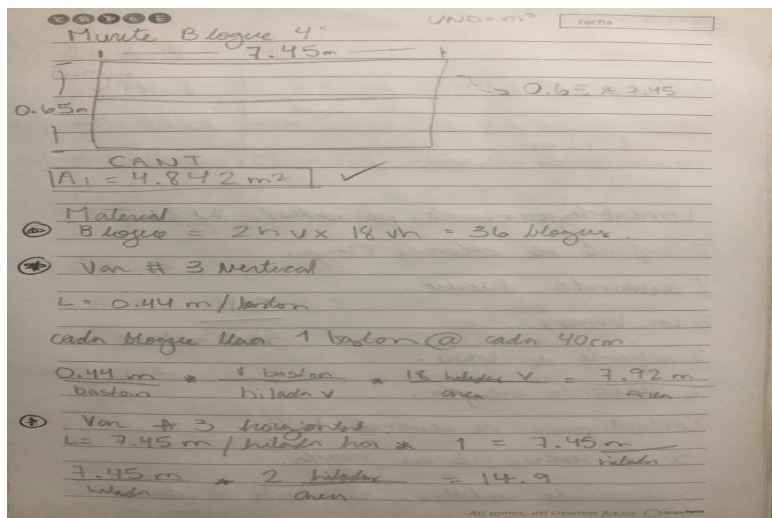 UND = m²
Fecha
Murete Bloque 4"
7.45m
0.65m
0.65 * 7.45
CANT.
A1 = 4.842 m2 ✓
Material
Bloque = 2 h v x 18 vh = 36 bloques.
Var # 3 vertical
L = 0.44 m / baston
cada bloque lleva 1 baston @ cada 40cm
0.44 m * 1 baston * 18 hiladas V = 7.92 m
baston hilada v area Area
Var # 3 horizontal
L = 7.45 m / hilada hor * 1 = 7.45 m
hilada
7.45 m * 2 hiladas = 14.9
hilada area
Así somos, así creamos futuro